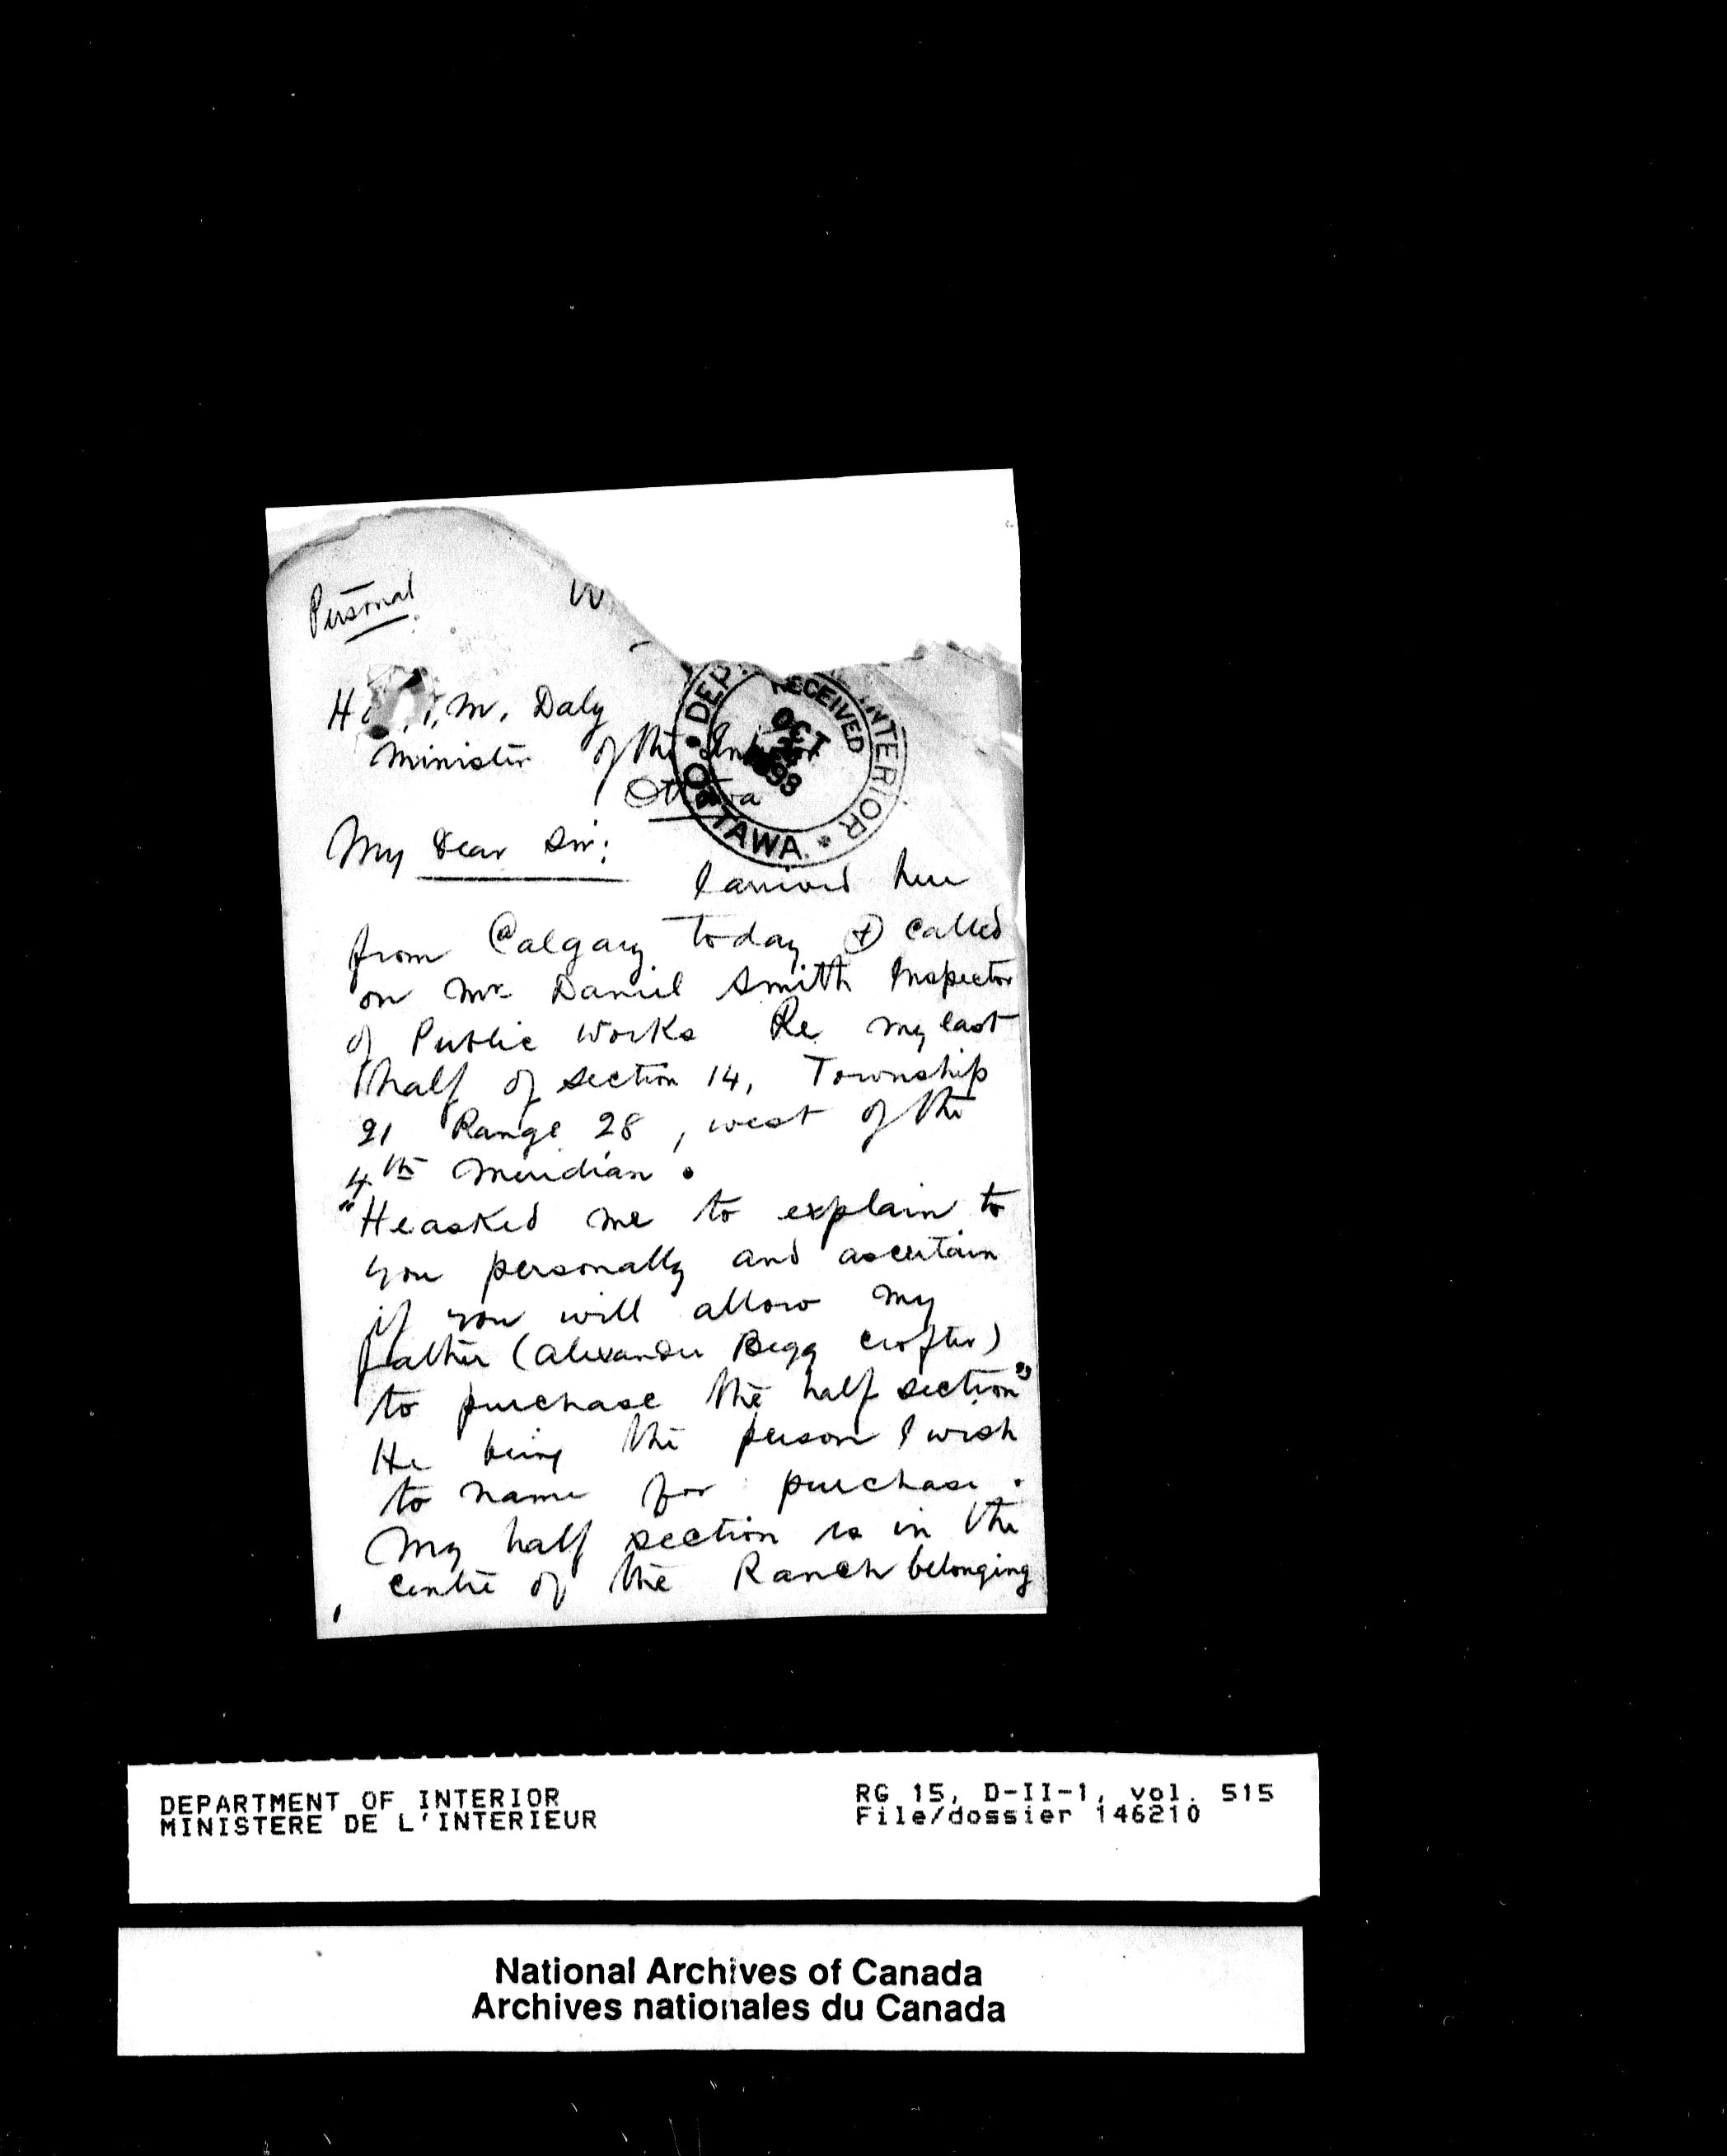 Personal
W
T. M. Daly
Minister of the Interior
Ottawa
DEPT. INTERIOR
RECEIVED
OCT
1893
OTTAWA
My Dear Sir:
I arrived here
from Calgary today & called
on Mr Daniel Smith Inspector
of Public Works Re my East
half of section 14, Township
21 Range 28, west of the
4th Meridian.
"He asked me to explain to
you personally and ascertain
if you will allow my
father (Alexander Begg Crofter)
to purchase the half section"
He being the person I wish
to name for purchase.
My half section is in the
centre of the Ranch belonging
DEPARTMENT OF INTERIOR
MINISTERE DE L'INTERIEUR
RG 15, D-II-1, vol. 515
File/dossier 146210
National Archives of Canada
Archives nationales du Canada